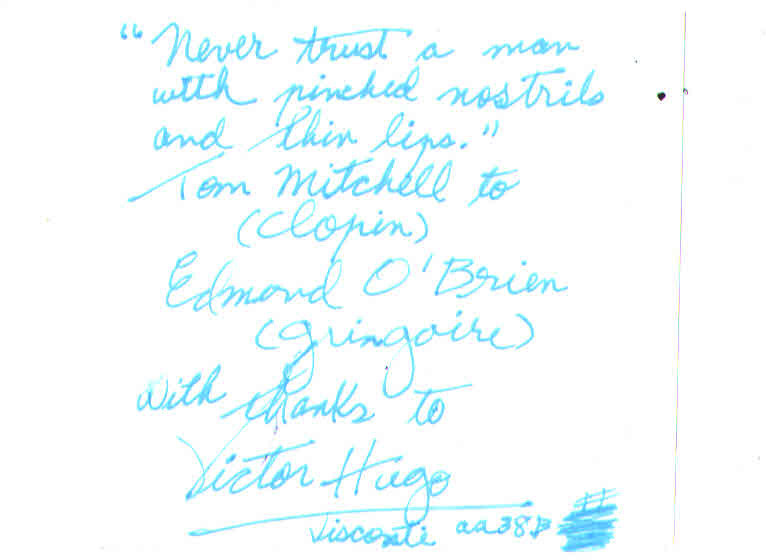 "Never trust a man
with pinched nostrils
and thin lips."
Tom Mitchell to
(Clopin)
Edmond O'Brien
(Gringoire)
With thanks to
Victor Hugo
Visconti aa38B